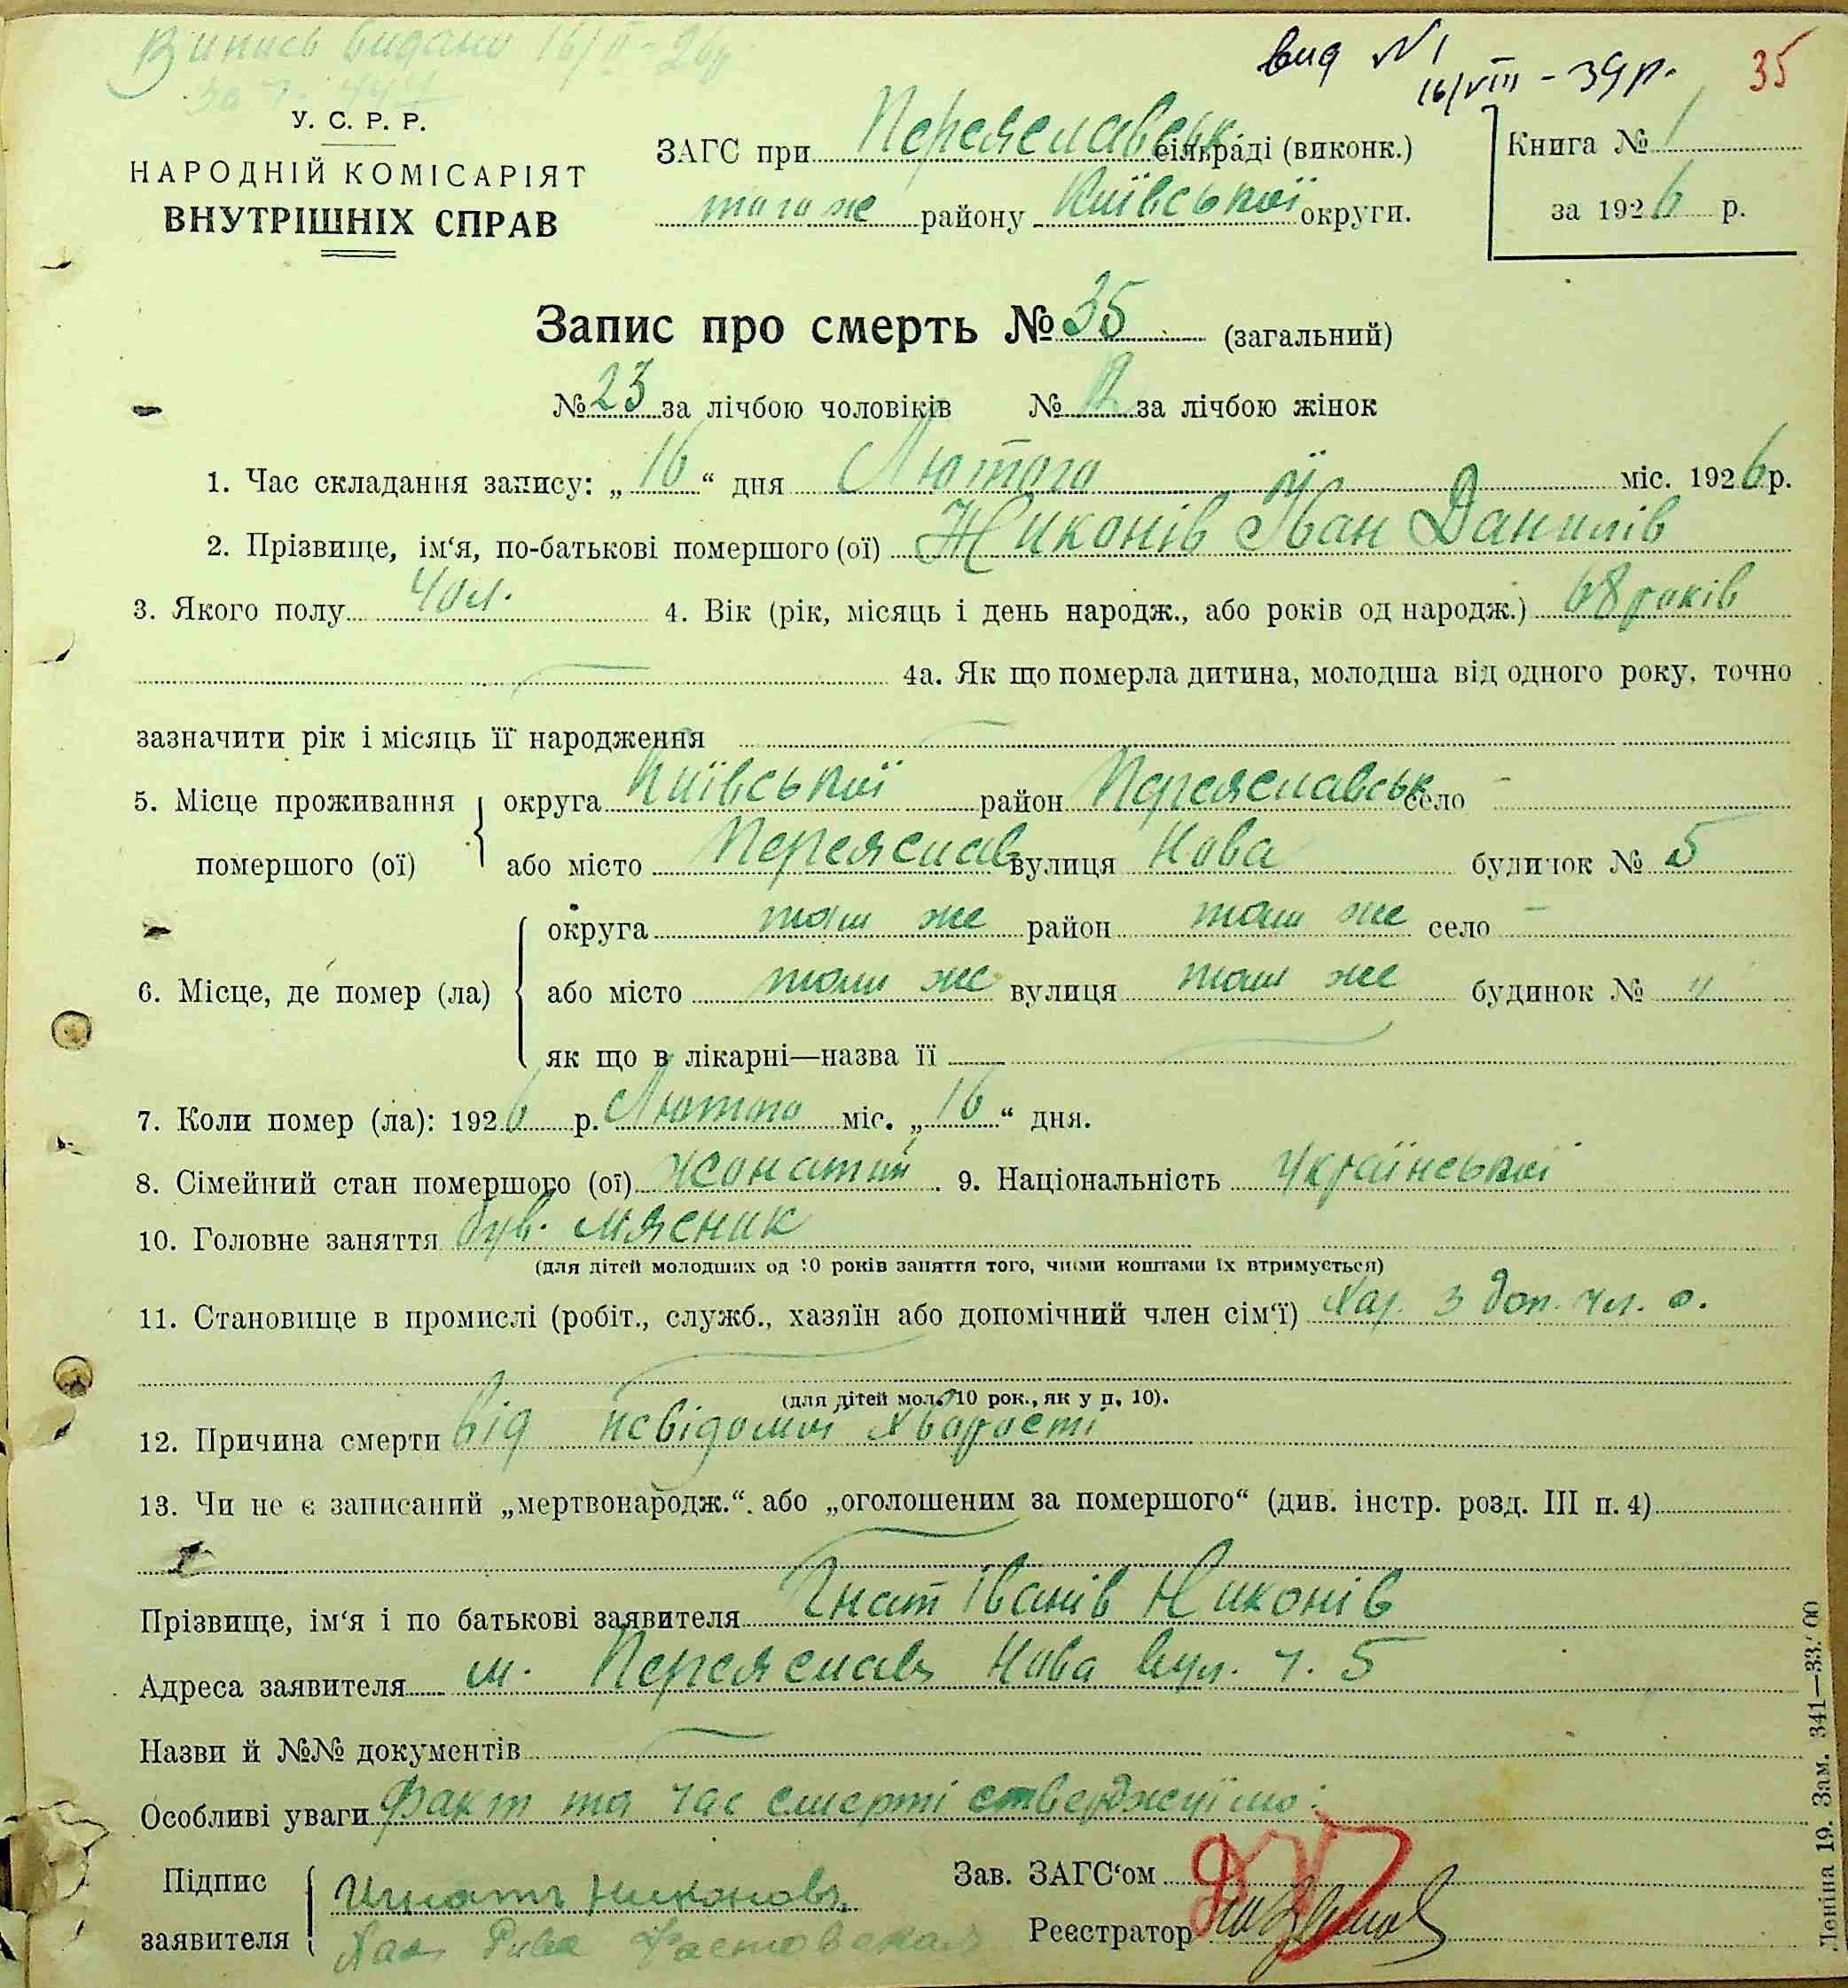 Випись видано 16/II-26р
за ч. 444
вид №1
16/VIII - 39 р.
35
У. С. Р. Р.
НАРОДНІЙ КОМІСАРІЯТ
ВНУТРІШНІХ СПРАВ
ЗАГС при Переяславськ сільраді (виконк.)
того же району Київської округи.
Книга № 1
за 1926 р.
Запис про смерть № 35 (загальний)
№ 23 за лічбою чоловіків № 12 за лічбою жінок
1. Час складання запису: „16“ дня Лютого міс. 1926 р.
2. Прізвище, ім‘я, по-батькові помершого (ої) Никонів Іван Данилів
3. Якого полу чол. 4. Вік (рік, місяць і день народж., або років од народж.) 68 років
4а. Як що померла дитина, молодша від одного року, точно
зазначити рік і місяць її народження
5. Місце проживання помершого (ої) округа Київської район Переяславськ село -
або місто Переяслав вулиця Нова будинок № 5
6. Місце, де помер (ла) округа там же район там же село -
або місто там же вулиця там же будинок № "
як що в лікарні—назва її
7. Коли помер (ла): 1926 р. Лютого міс. „16“ дня.
8. Сімейний стан помершого (ої) жонатий. 9. Національність Української
10. Головне заняття був. мясник
(для дітей молодших од 10 років заняття того, чиїми коштами їх втримується)
11. Становище в промислі (робіт., служб., хазяїн або допомічний член сім‘ї) Хаз. з доп. чл. с.
(для дітей мол. 10 рок., як у п. 10).
12. Причина смерти від невідомої хворости
13. Чи не є записаний „мертвонародж.“ або „оголошеним за помершого“ (див. інстр. розд. III п. 4)
Прізвище, ім‘я і по батькові заявителя Гнат Іванів Никонів
Адреса заявителя м. Переяслав Нова вул. ч. 5
Назви й №№ документів
Особливі уваги Факт та час смерті стверджуїмо:
Підпис заявителя Игнатъ Никоновъ
Зав. ЗАГС‘ом
Реєстратор
Леніна 19. Зам. 341—33.000